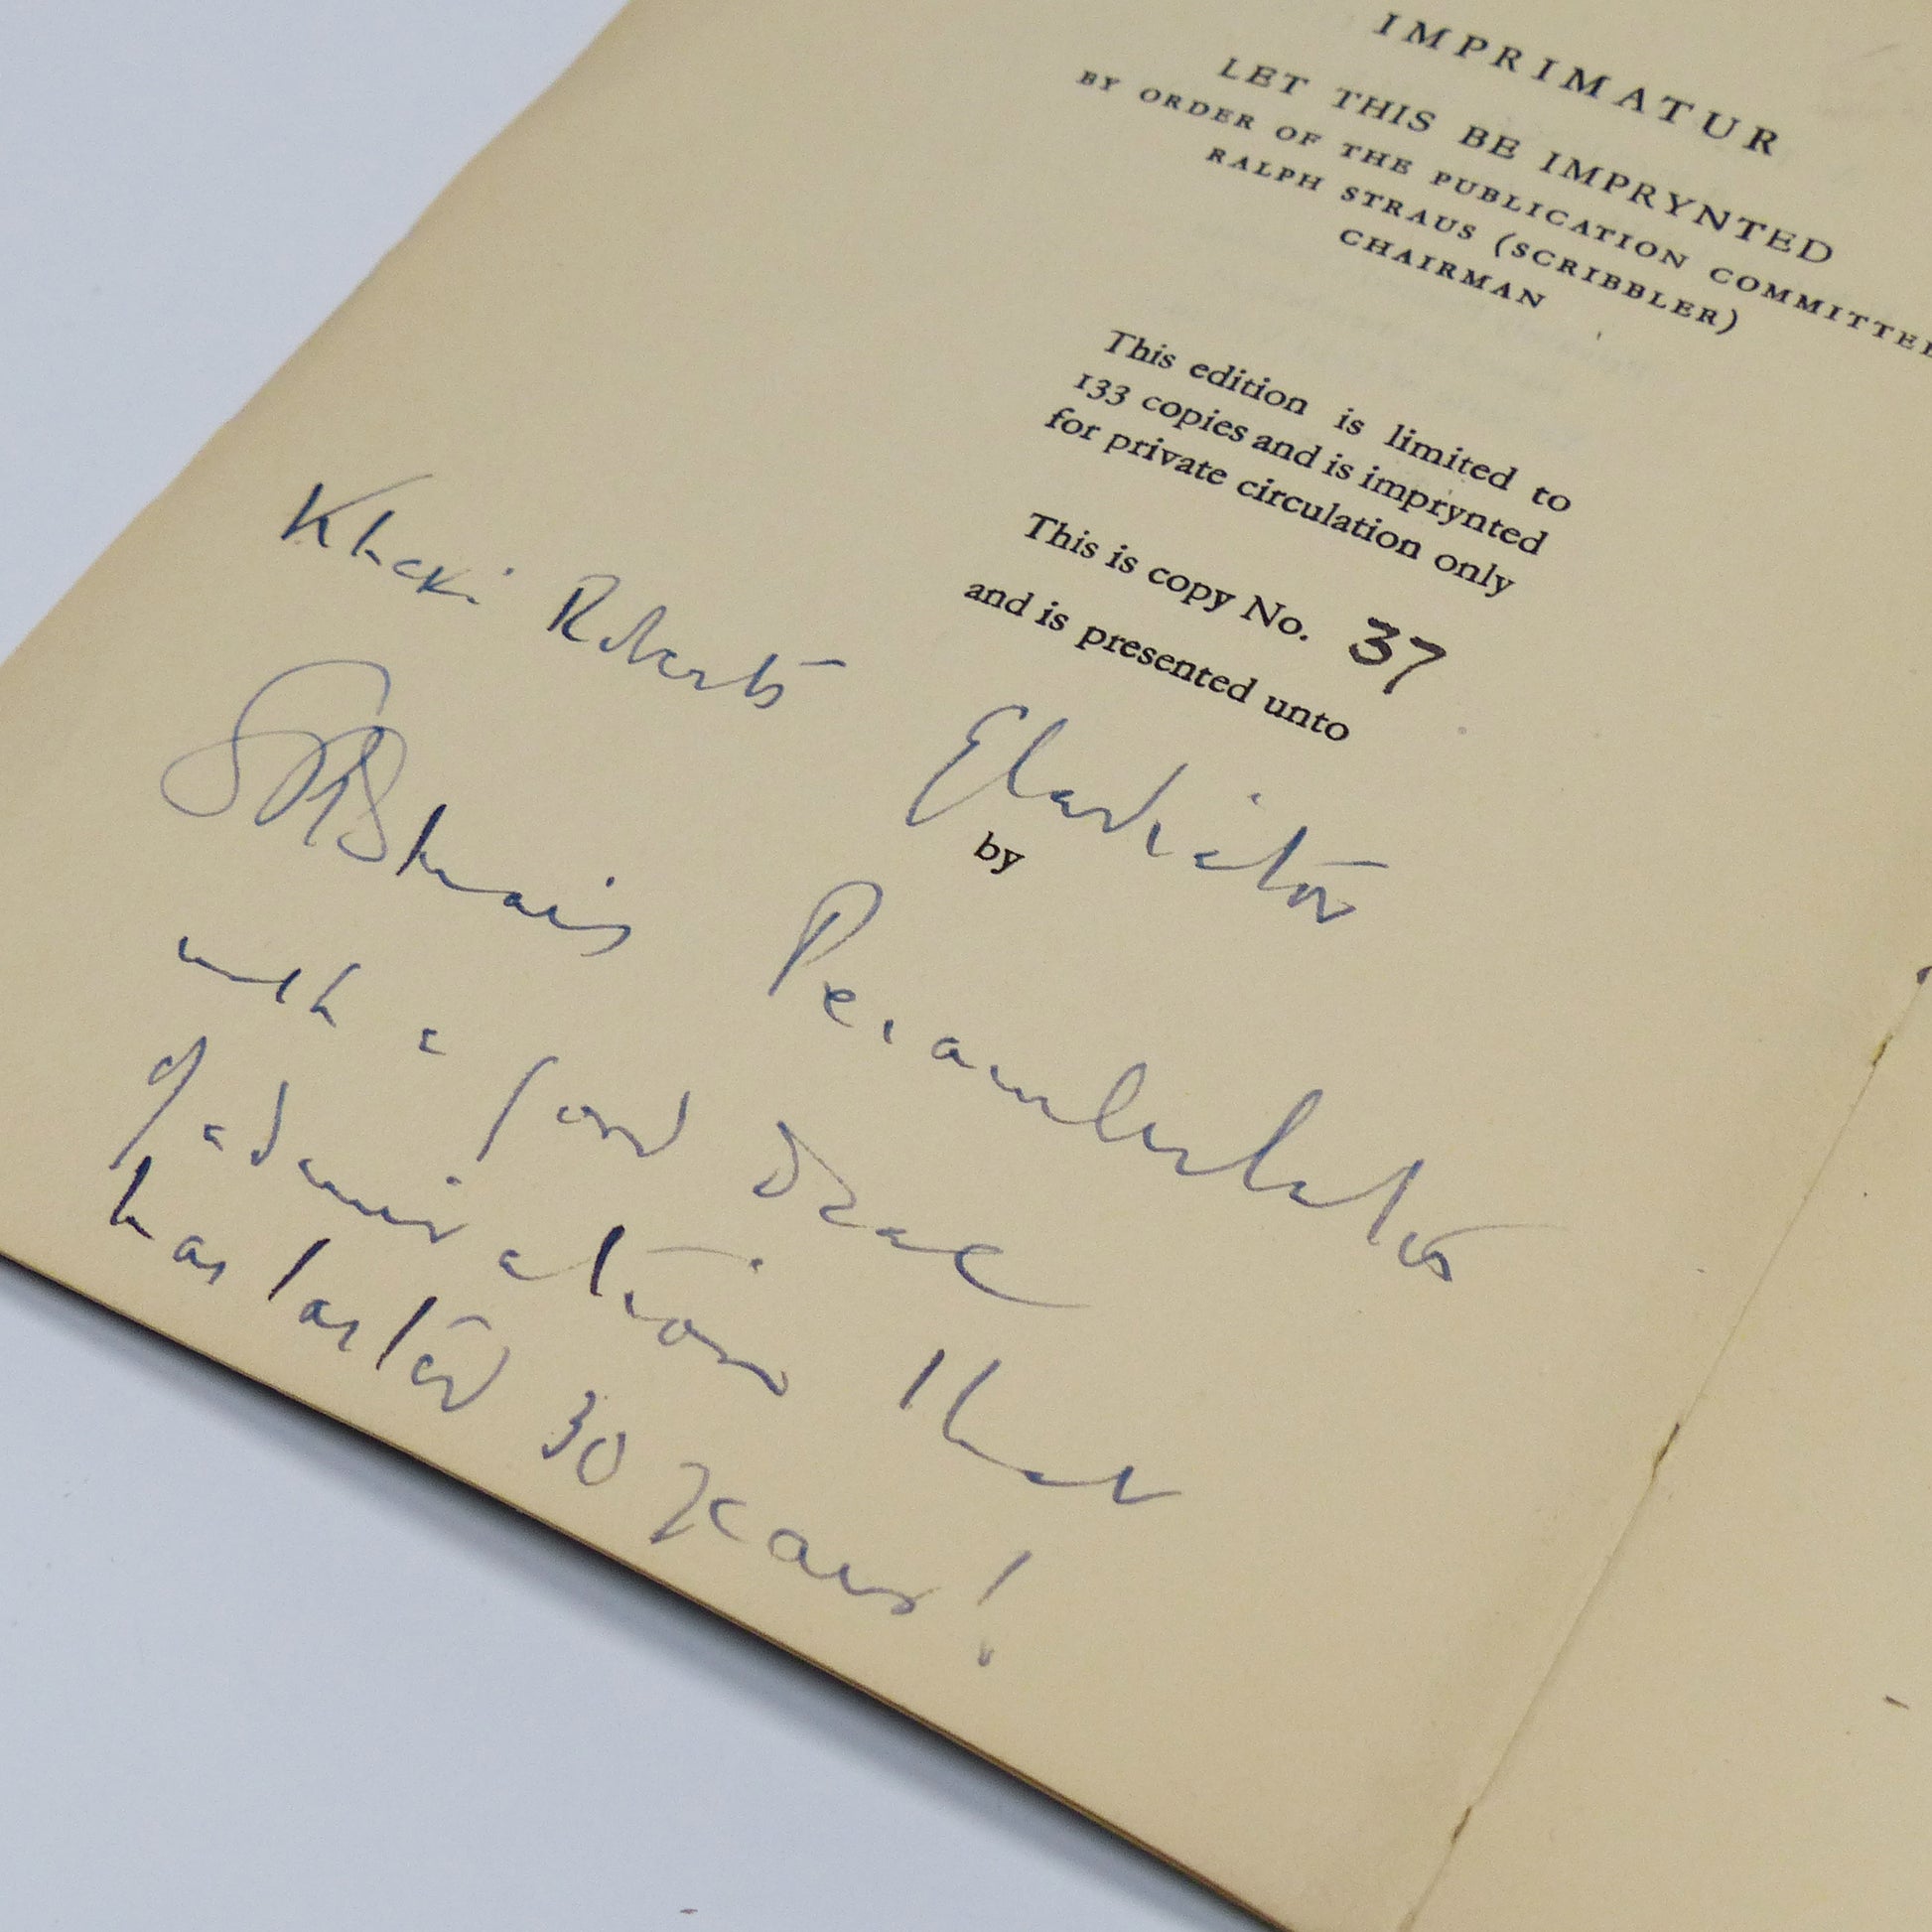 IMPRIMATUR
LET THIS BE IMPRYNTED
BY ORDER OF THE PUBLICATION COMMITTEE
RALPH STRAUS (SCRIBBLER)
CHAIRMAN
This edition is limited to
133 copies and is imprynted
for private circulation only
This is copy No. 37
and is presented unto
Khaki Roberts
by
Perambulator
with a good deal
of admiration that
has lasted 30 years!